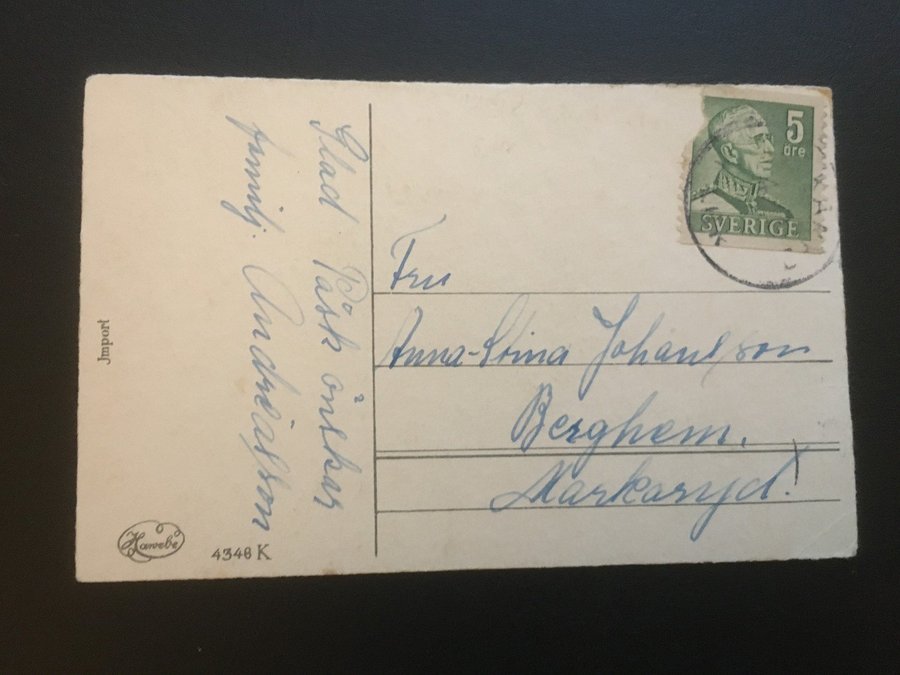 Glad Påsk önskar
familj. Andreasson
Jmport
Hawebe
4348 K
5
öre
SVERIGE
Fru
Anna-Stina Johansson
Berghem.
Markaryd!